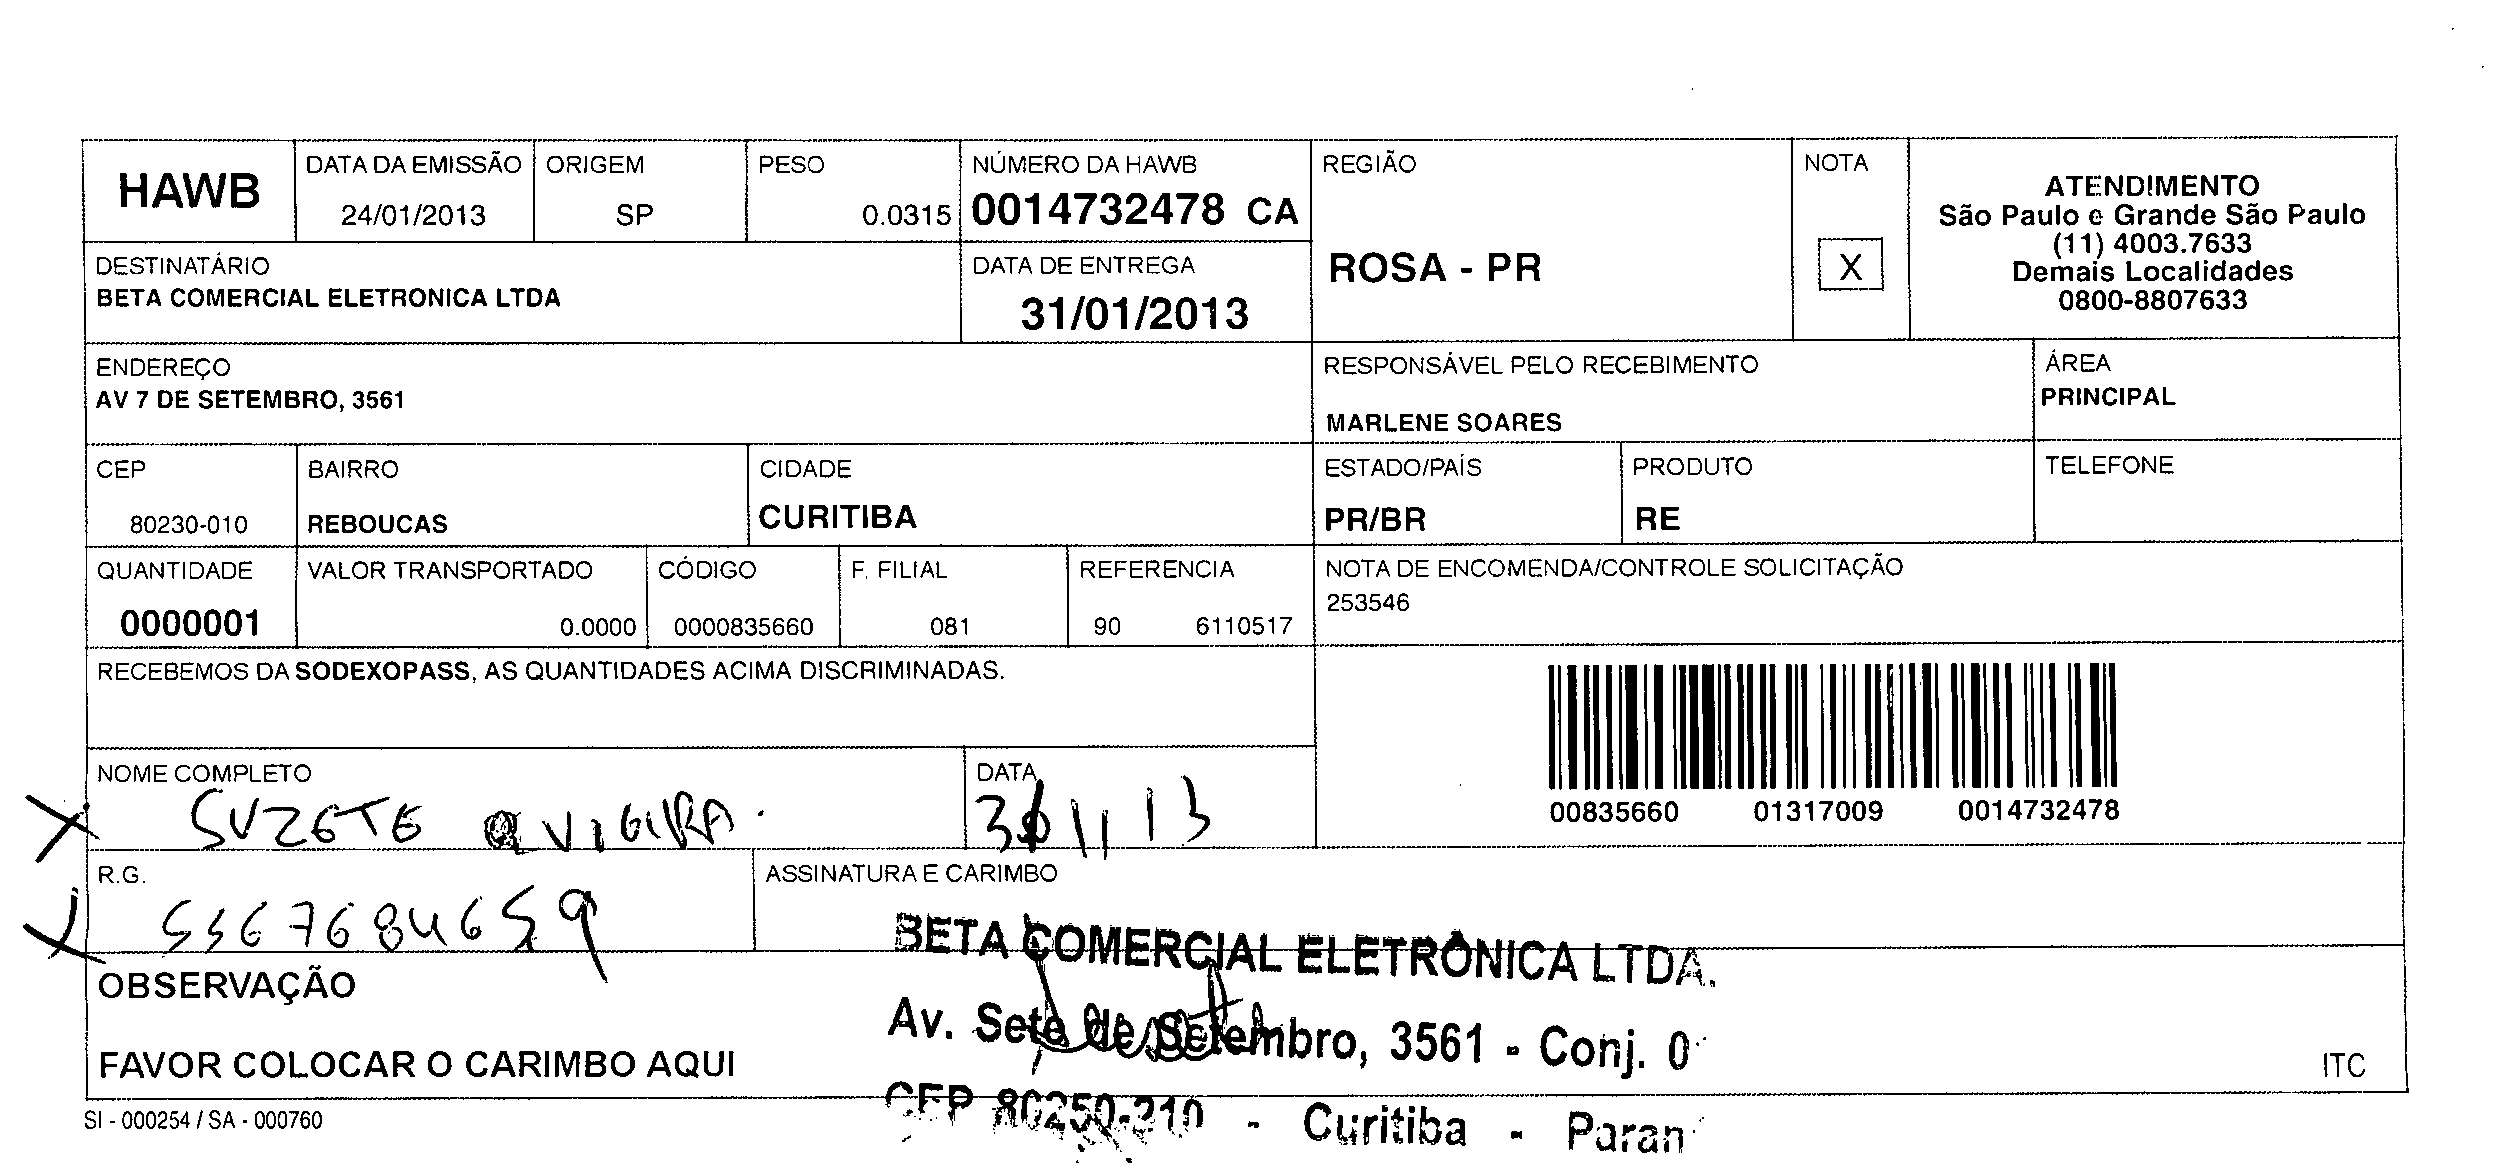 HAWB
DATA DA EMISSÃO
24/01/2013
ORIGEM
SP
PESO
0.0315
NÚMERO DA HAWB
0014732478 CA
REGIÃO
ROSA - PR
NOTA
X
ATENDIMENTO
São Paulo e Grande São Paulo
(11) 4003.7633
Demais Localidades
0800-8807633
DESTINATÁRIO
BETA COMERCIAL ELETRONICA LTDA
DATA DE ENTREGA
31/01/2013
ENDEREÇO
AV 7 DE SETEMBRO, 3561
RESPONSÁVEL PELO RECEBIMENTO
MARLENE SOARES
ÁREA
PRINCIPAL
CEP
80230-010
BAIRRO
REBOUCAS
CIDADE
CURITIBA
ESTADO/PAÍS
PR/BR
PRODUTO
RE
TELEFONE
QUANTIDADE
0000001
VALOR TRANSPORTADO
0.0000
CÓDIGO
0000835660
F. FILIAL
081
REFERENCIA
90 6110517
NOTA DE ENCOMENDA/CONTROLE SOLICITAÇÃO
253546
RECEBEMOS DA SODEXOPASS, AS QUANTIDADES ACIMA DISCRIMINADAS.
00835660 01317009 0014732478
NOME COMPLETO
SUZETE
DATA
R.G.
ASSINATURA E CARIMBO
BETA COMERCIAL ELETRÔNICA LTDA.
Av. Sete de Setembro, 3561 - Conj. 0
CEP 80250-210 - Curitiba - Paran
OBSERVAÇÃO
FAVOR COLOCAR O CARIMBO AQUI
ITC
SI - 000254 / SA - 000760